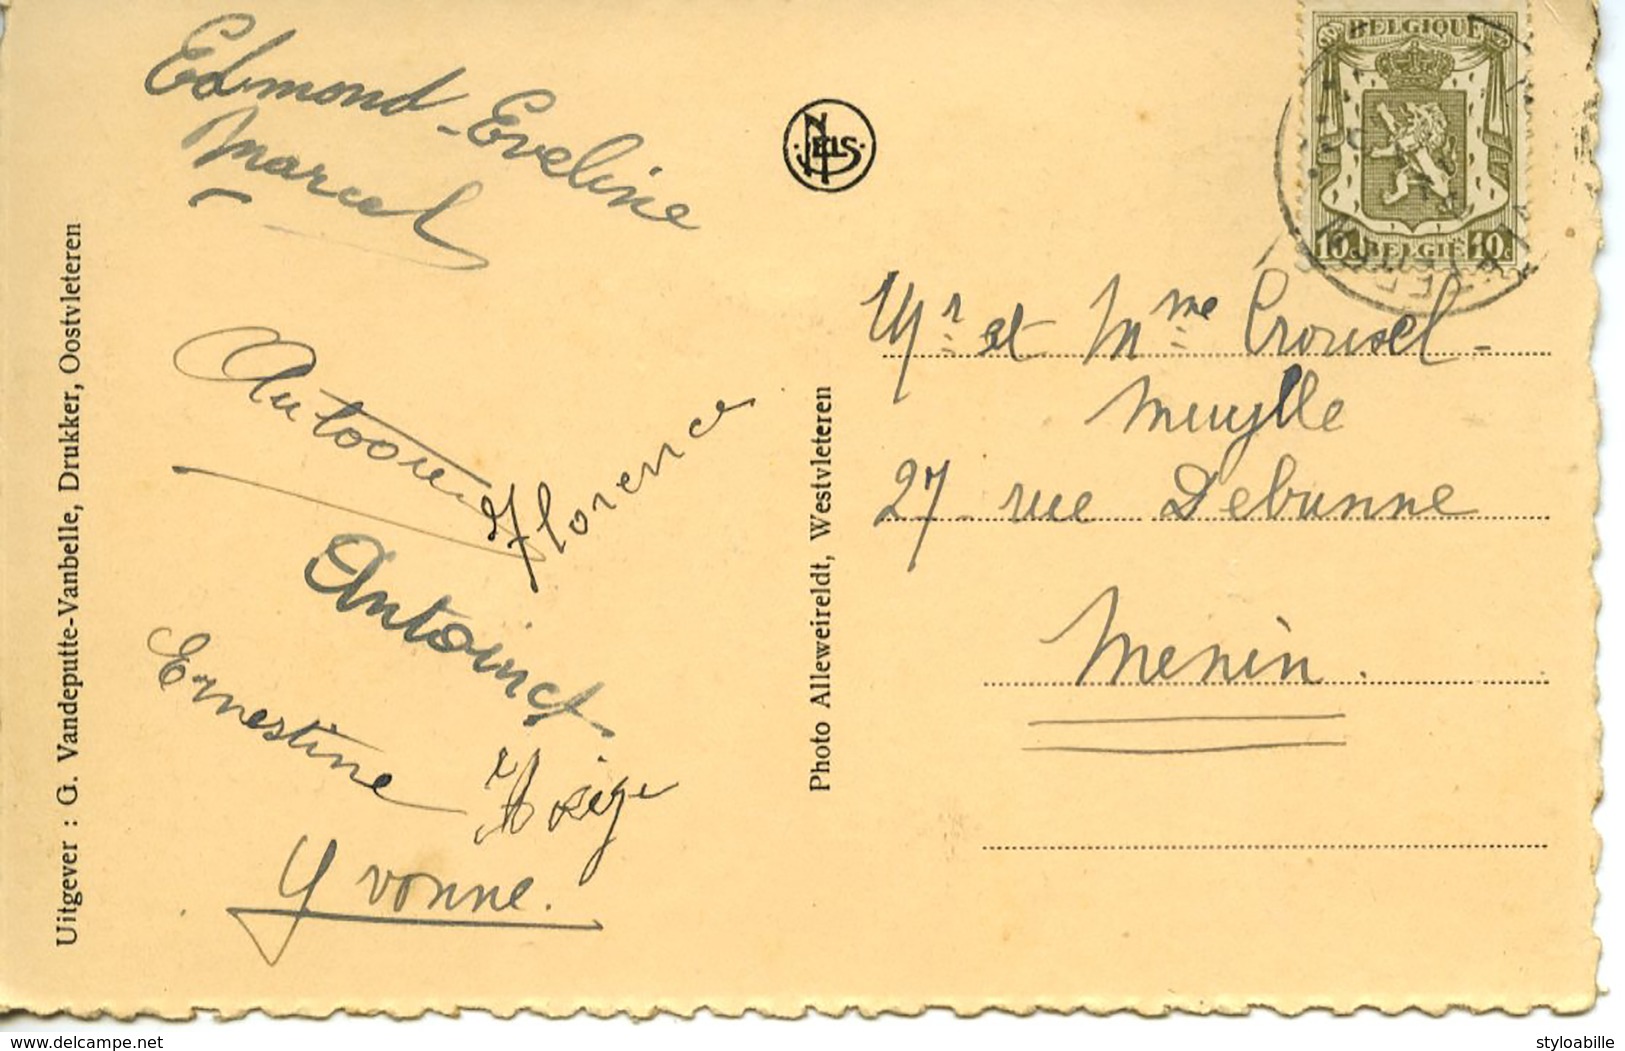 Edmond - Eveline
Marcel
Florence
Antoinette
Ernestine
Yvonne.
Uitgever : G. Vandeputte-Vanbelle, Drukker, Oostvleteren
NELS
Photo Alleweireldt, Westvleteren
BELGIQUE
10c BELGIË 10c
Mr et Mme Crousel -
Muylle
27 rue Debunne
Menin.
delcampe.net
styloabille